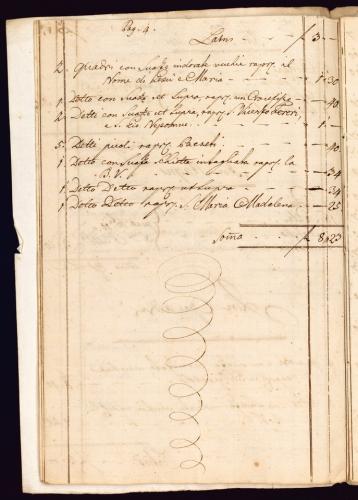 Pag. 4.
Latus - - - f 3 -
2. Quadri con Suaze indorate vechie rapp. il
Nome di Iesu e Maria - - - - 1 - 30
1 Detto con Suaze et Supra, rapp. un Crocifisso - 40
2 Dette con Suaze et Supra, rapp. S.
e S. Gio Nepomuc. - - - 1 -
5. Detti picoli rapp. Paesetti - - - - 40
1 Detto con Suaze intagliata rapp. la
B. V. - - - - 34
1 Detto Detto rapp. ut supra - - - 34
1 Detto Detto rapp. S. Maria Madalena - - 25
Soma - - - f 8 23